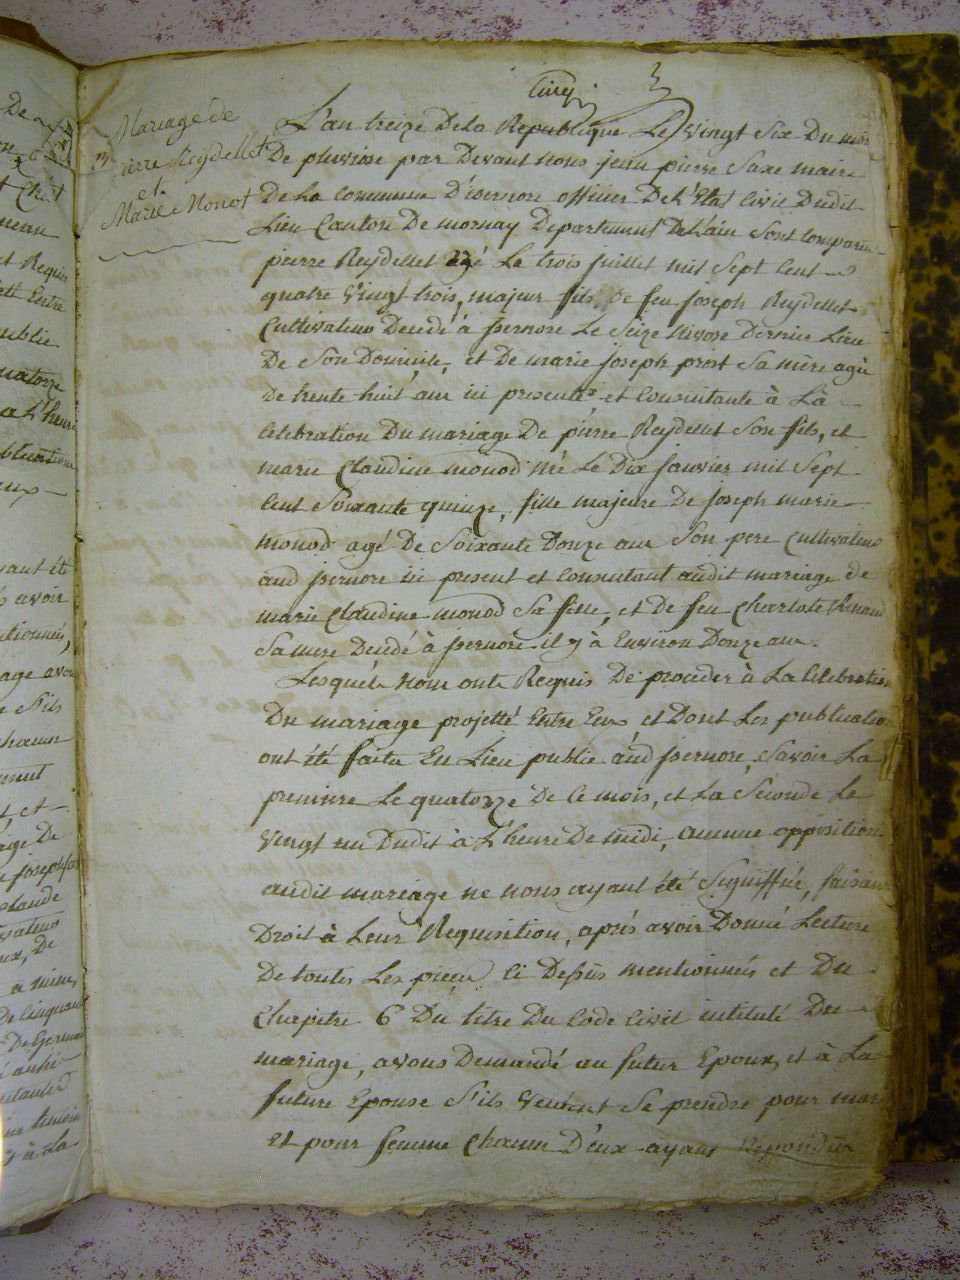 Cinq
Mariage de
pierre Reydellet
et
Marie Monot
L'an treize De La Republique Le Vingt Six Du mois
De pluviose par Devant nous jean pierre Saxe maire
De La Commune D'isernore officier De L'Etat Civil Dudit
Lieu Canton De mornay Departement De L'ain Sont Comparu
pierre Reydellet né Le trois juillet mil Sept Cent
quatre Vingt trois, majeur fils De feu joseph Reydellet
Cultivateur Decedé à isernore Le Seize Nivose Dernier Lieu
De Son Domicile, et De marie joseph prost Sa mère agée
De trente huit ans ici presente et Consentante à La
Celebration Du mariage De pierre Reydellet Son fils, et
marie Claudine monod Né Le Dix janvier mil Sept
Cent Soixante quinze, fille majeure De joseph marie
monod agé De Soixante Douze ans Son pere Cultivateur
aud isernore ici present et Consentant audit mariage de
marie Claudine monod Sa fille, et De feu Charlote
Sa mere Decédé à isernore il y à Environ Douze ans.
Lesquels nous ont Requis De proceder à La Celebration
Du mariage projetté Entre Eux et Dont Les publication
ont été faites En Lieu public aud isernore, Savoir La
premiere Le quatorze De Ce mois, et La Seconde Le
Vingt un Dudit à L'heure De midi, aucune opposition
audit mariage ne nous ayant été Signiffiée, faisant
Droit à Leur Requisition, aprés avoir Donné Lecture
De toutes Les pieces Ci Dessus mentionnées et Du
Chapitre 6 Du titre Du Code Civil intitulé Du
mariage, avons Demandé au futur Epoux, et à La
future Epouse S'ils Veulent Se prendre pour mari
Et pour femme Chacun D'eux ayant Repondu